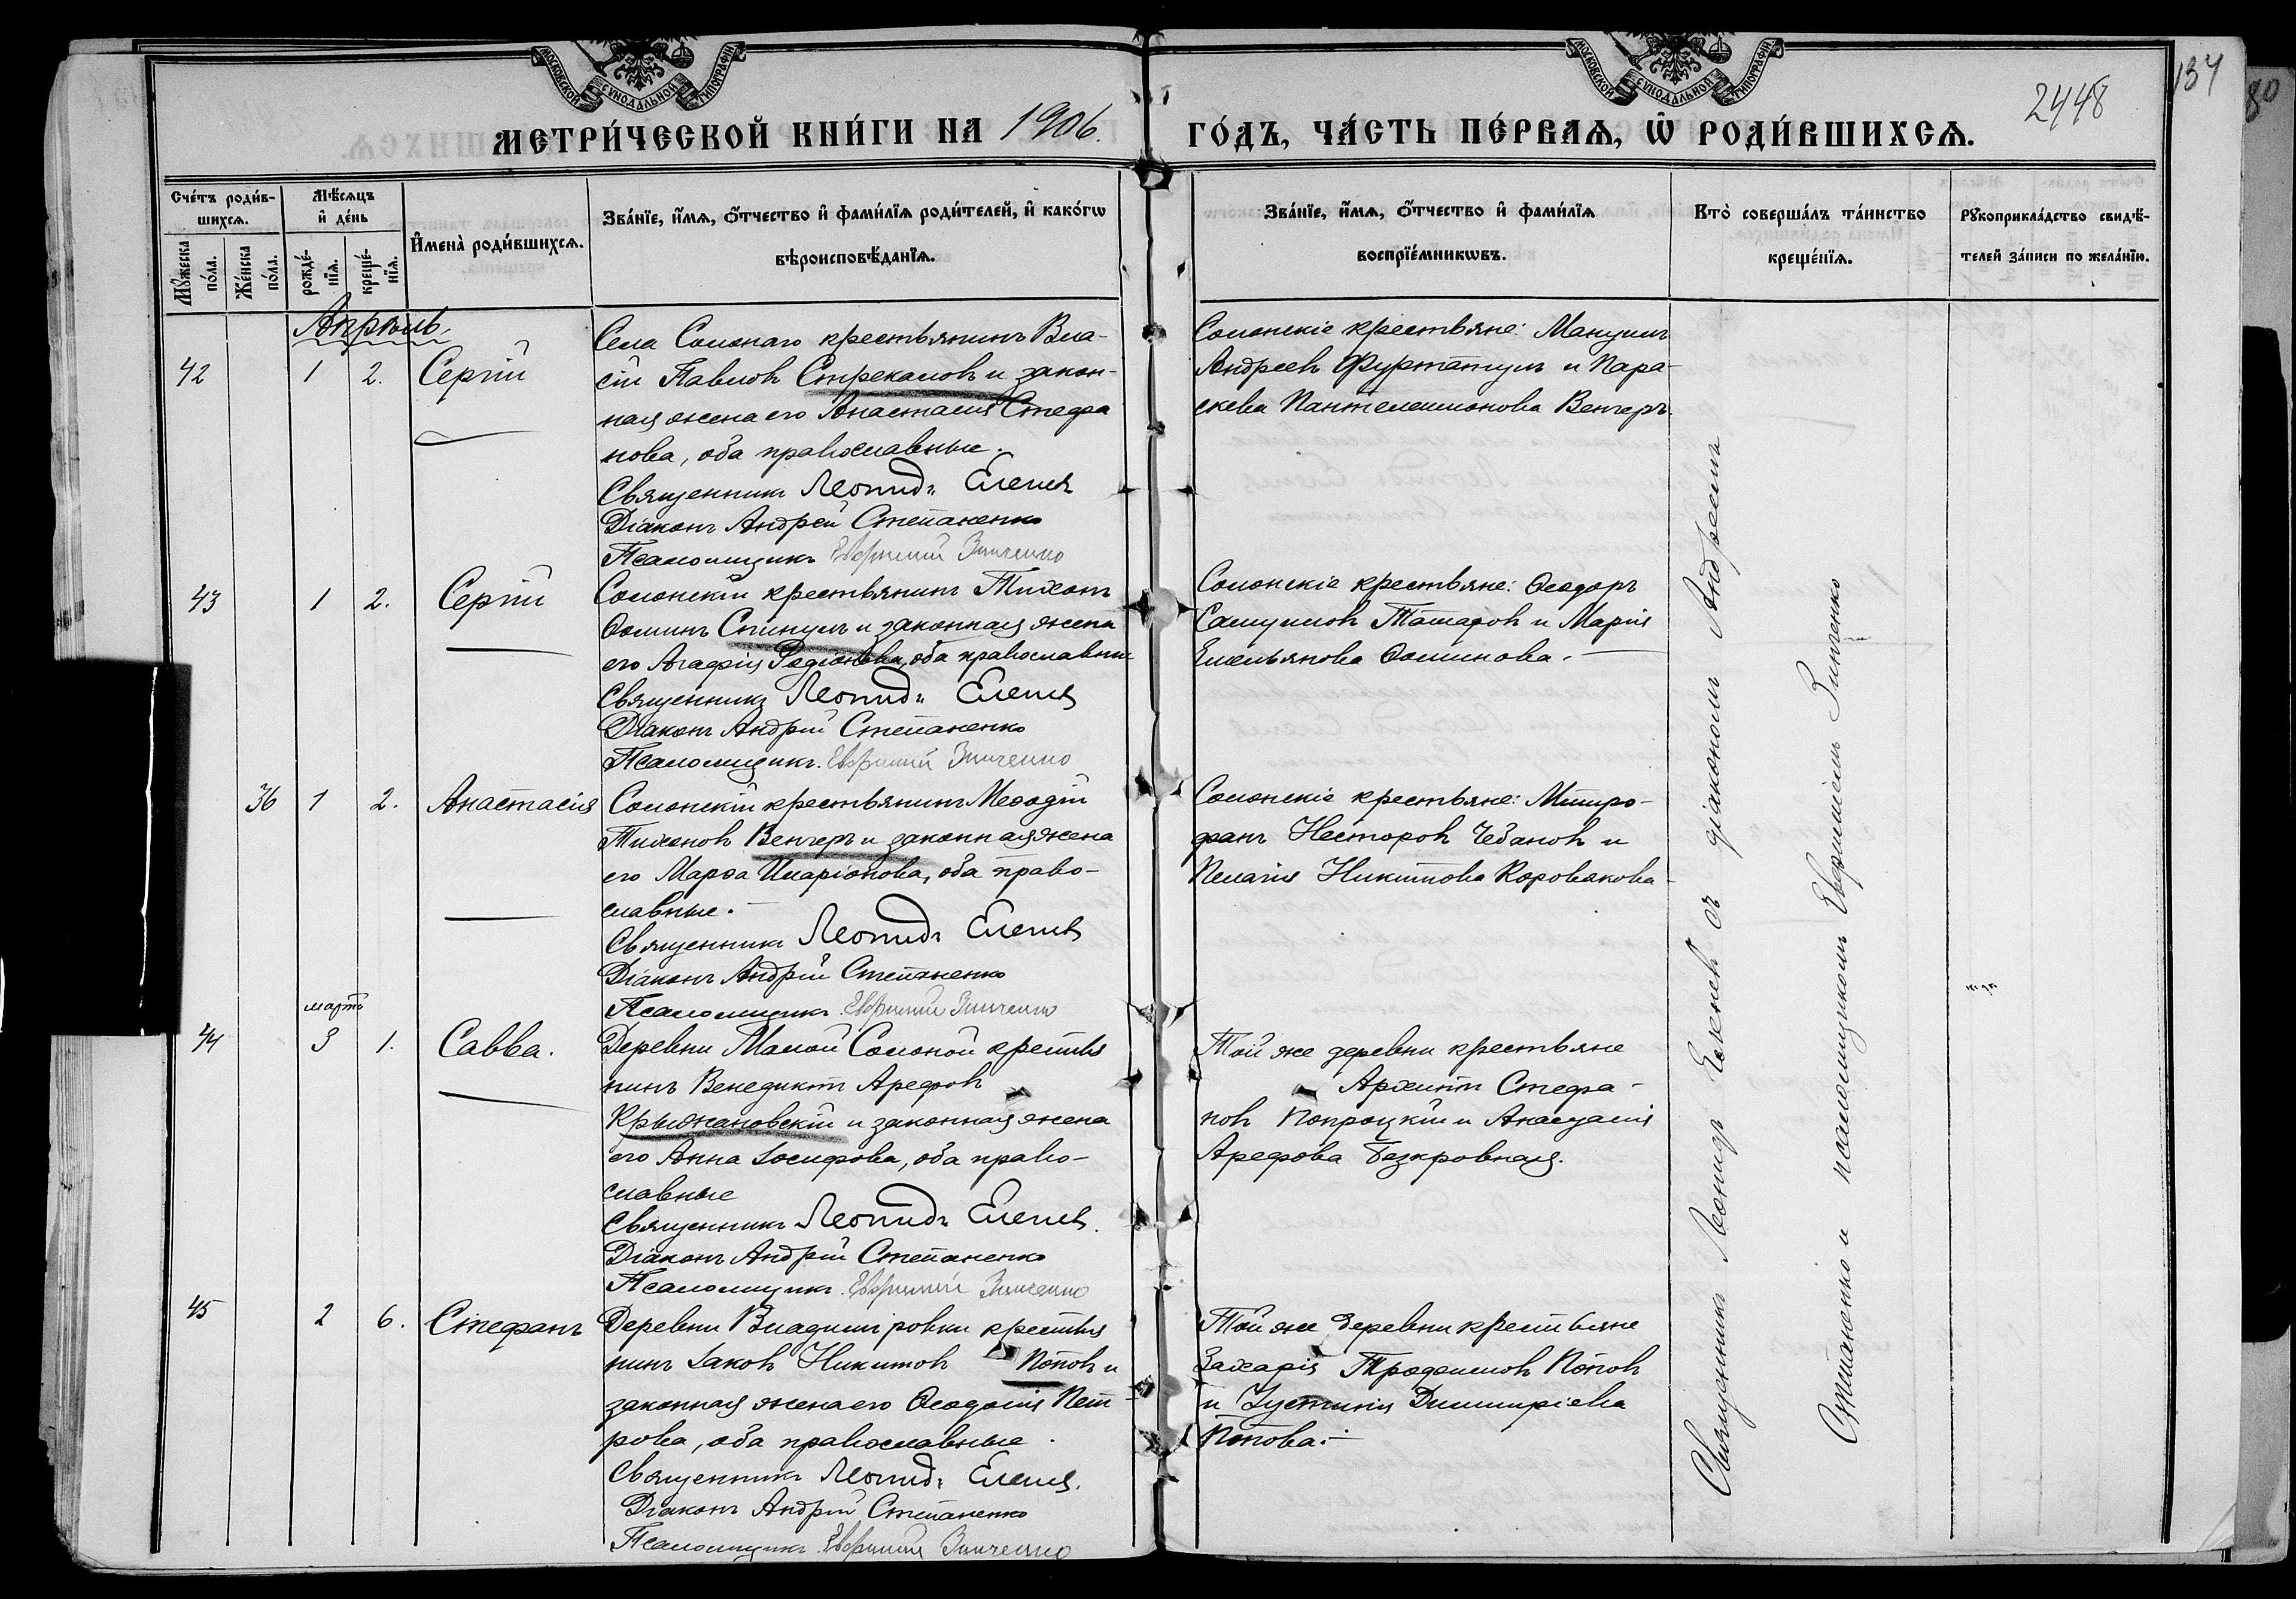 МОСКОВСКОЙ СѴНОДАЛЬНОЙ ТИПОГРАФІИ
МОСКОВСКОЙ СѴНОДАЛЬНОЙ ТИПОГРАФІИ
137
80
2448
МЕТРИ́ЧЕСКОЙ КНИ́ГИ НА 1906. ГО́ДЪ, ЧА́СТЬ ПЕ́РВАЯ, Ѽ РОДИ́ВШИХСѦ.
Сче́тъ роди́в-
шихсѧ.
Мꙋ́жеска по́ла.
Же́нска по́ла.
Мѣ́сѧцъ
и҆ де́нь
рожде́-
нїѧ.
креще́-
нїѧ.
И҆мена̀ роди́вшихсѧ.
Зва́нїе, и҆́мѧ, ѻ҆́тчество и҆ фами́лїѧ роди́телей, и҆ како́гѡ
вѣроисповѣ́данїѧ.
Зва́нїе, и҆́мѧ, ѻ҆́тчество и҆ фами́лїѧ
воспрїе́мникѡвъ.
Кто̀ соверша́лъ та́инство
креще́нїѧ.
Рꙋкоприкла́дство свидѣ́-
телей за́писи по жела́нїю.
Апрѣль
42 1 2. Сергій
Села Солонаго крестьянинъ Вла-
сій Павловъ Стрекаловъ и закон-
ная жена его Анастасія Стефа
нова, оба православные.
Священникъ Леонидъ
Діаконъ Андрей Степаненко
Псаломщикъ Евфимій Зинченко
Солонскіе крестьяне: Мануилъ
Андреевъ Фуртатулъ и Пара-
скева Пантелеимонова Венгеръ
43 1 2. Сергій
Солонскій крестьянинъ Тихонъ
Ѳоминъ Спинулъ и законная жена
его Агафія Родіонова, оба православные
Священникъ Леонидъ
Діаконъ Андрей Степаненко
Псаломщикъ Евфимій Зинченко
Солонскіе крестьяне: Ѳеодоръ
Самуиловъ Татаровъ и Марія
Емельянова Ѳоминова.
36 1 2. Анастасія
Солонскій крестьянинъ Меѳодій
Тихоновъ Венгеръ и законная жена
его Марѳа Иларіонова, оба право-
славные.
Священникъ Леонидъ
Діаконъ Андрей Степаненко
Псаломщикъ Евфимій Зинченко
Солонскіе крестьяне: Митро-
фанъ Несторовъ Чебановъ и
Пелагія Никитова Коровякова
мартъ
44 3 1. Савва.
Деревни Малой Солоной крестья
нинъ Венедиктъ Арефовъ
Крыжановскій и законная жена
его Анна Іосифова, оба право-
славные
Священникъ Леонидъ
Діаконъ Андрей Степаненко
Псаломщикъ Евфимій Зинченко
Той же деревни крестьяне
Архиппъ Стефа-
новъ Копроцкій и Анастасія
Арефова Безкровная.
45 2 6. Стефанъ
Деревни Владиміровки крестья
нинъ Іаковъ Никитовъ Поповъ и
законная жена его Ѳеодосія Пет
рова, оба православные.
Священникъ Леонидъ
Діаконъ Андрей Степаненко
Псаломщикъ Евфимій Зинченко
Той же деревни крестьяне
Захарія Трофимовъ Поповъ
и Іустинія Димитріева
Попова.
Священникъ Леонидъ съ діакономъ Андреемъ
Степаненко и псаломщикомъ Евфиміемъ Зинченко